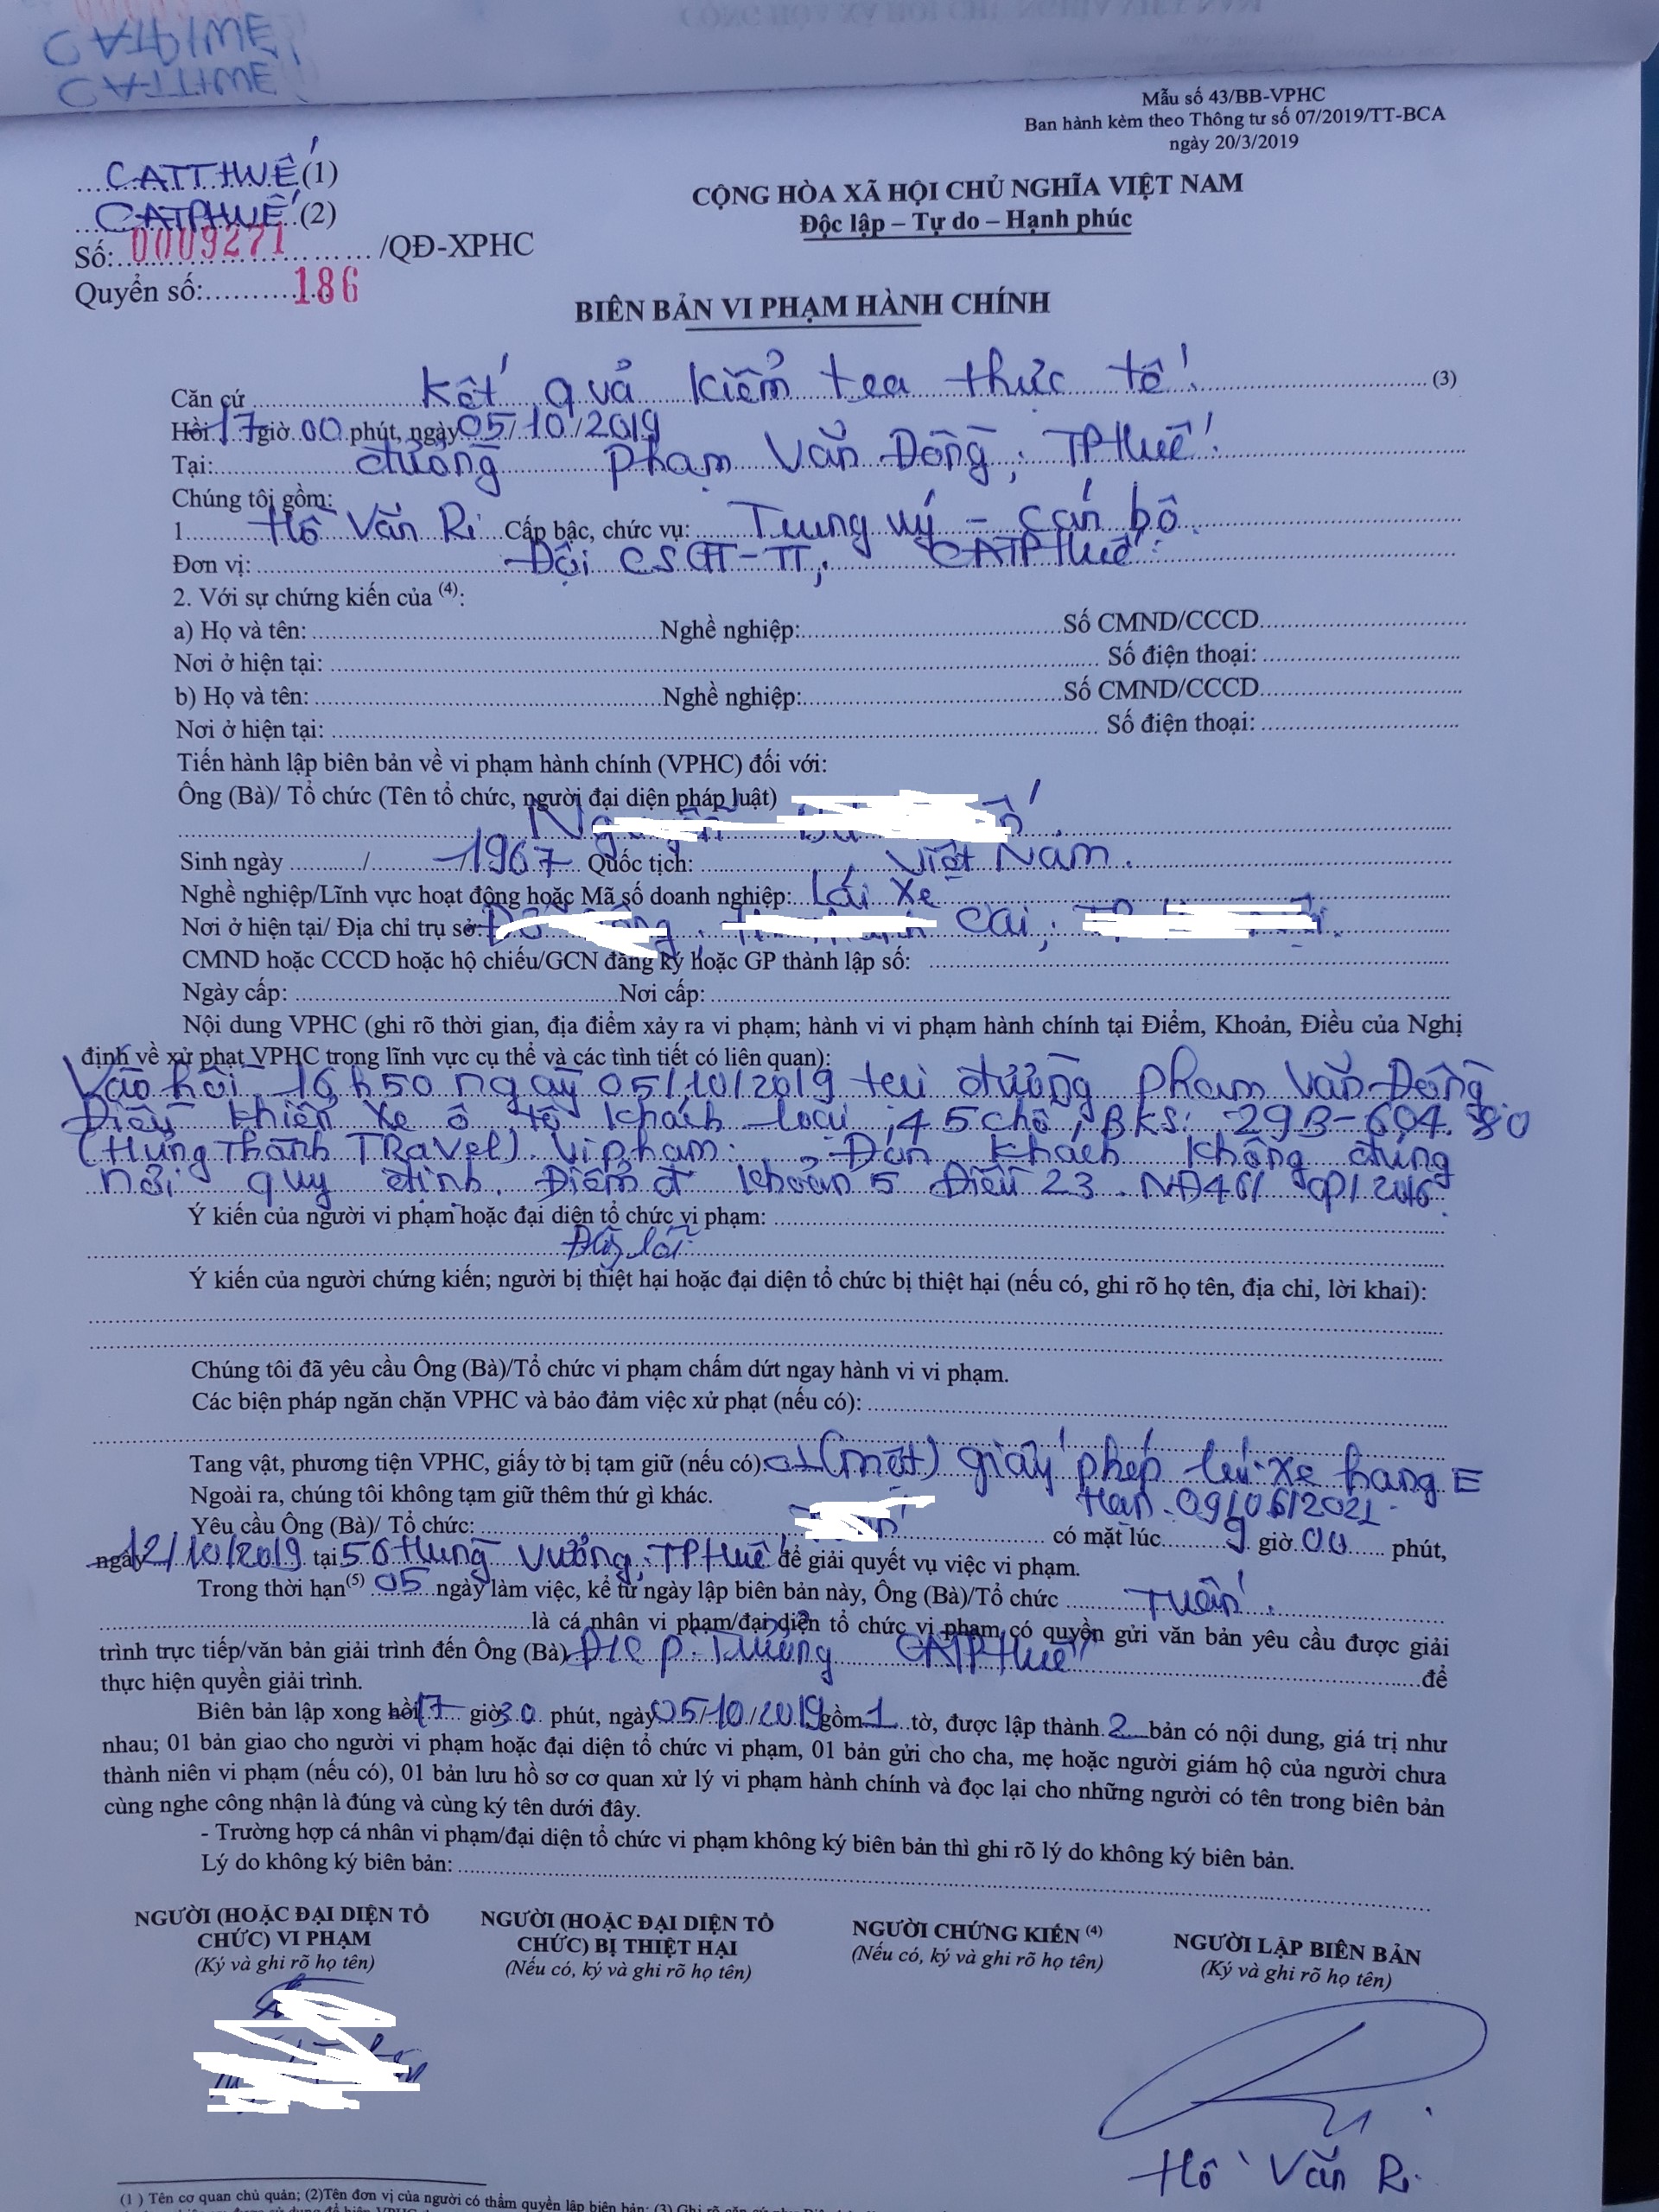 CATTHUẾ
CATTHUẾ
CỘNG HÒA XÃ HỘI CHỦ NGHĨA VIỆT NAM
Mẫu số 43/BB-VPHC
Ban hành kèm theo Thông tư số 07/2019/TT-BCA
ngày 20/3/2019
CATTHUẾ (1)
CATPHUẾ (2)
Số: 0009271 /QĐ-XPHC
Quyển số: 186
CỘNG HÒA XÃ HỘI CHỦ NGHĨA VIỆT NAM
Độc lập – Tự do – Hạnh phúc
BIÊN BẢN VI PHẠM HÀNH CHÍNH
Căn cứ Kết quả kiểm tra thực tế (3)
Hồi 17 giờ 00 phút, ngày 05/10/2019
Tại: đường Phạm Văn Đồng, TP Huế.
Chúng tôi gồm:
1. Hồ Văn Ri Cấp bậc, chức vụ: Trung uý - Cán bộ
Đơn vị: Đội CSGT-TT, CATP Huế.
2. Với sự chứng kiến của (4):
a) Họ và tên: Nghề nghiệp: Số CMND/CCCD
Nơi ở hiện tại: Số điện thoại:
b) Họ và tên: Nghề nghiệp: Số CMND/CCCD
Nơi ở hiện tại: Số điện thoại:
Tiến hành lập biên bản về vi phạm hành chính (VPHC) đối với:
Ông (Bà)/ Tổ chức (Tên tổ chức, người đại diện pháp luật)
Sinh ngày / 1967 Quốc tịch: Việt Nam.
Nghề nghiệp/Lĩnh vực hoạt động hoặc Mã số doanh nghiệp: Lái xe
Nơi ở hiện tại/ Địa chỉ trụ sở: Cai,
CMND hoặc CCCD hoặc hộ chiếu/GCN đăng ký hoặc GP thành lập số:
Ngày cấp: Nơi cấp:
Nội dung VPHC (ghi rõ thời gian, địa điểm xảy ra vi phạm; hành vi vi phạm hành chính tại Điểm, Khoản, Điều của Nghị
định về xử phạt VPHC trong lĩnh vực cụ thể và các tình tiết có liên quan):
Vào hồi 16h50 ngày 05/10/2019 tại đường Phạm Văn Đồng
Điều khiển xe ô tô khách loại 45 chỗ, BKS: 29B-604.80
(Hưng Thành TRavel). Vi phạm: Đón khách không đúng
nơi quy định. Điểm đ khoản 5 Điều 23 NĐ46/CP/2016.
Ý kiến của người vi phạm hoặc đại diện tổ chức vi phạm:
Ý kiến của người chứng kiến; người bị thiệt hại hoặc đại diện tổ chức bị thiệt hại (nếu có, ghi rõ họ tên, địa chỉ, lời khai):
Chúng tôi đã yêu cầu Ông (Bà)/Tổ chức vi phạm chấm dứt ngay hành vi vi phạm.
Các biện pháp ngăn chặn VPHC và bảo đảm việc xử phạt (nếu có):
Tang vật, phương tiện VPHC, giấy tờ bị tạm giữ (nếu có) 01 (một) giấy phép lái xe hạng E
Ngoài ra, chúng tôi không tạm giữ thêm thứ gì khác. Hạn 09/06/2021
Yêu cầu Ông (Bà)/ Tổ chức: có mặt lúc 9 giờ 00 phút,
ngày 12/10/2019 tại 56 Hùng Vương, TP Huế để giải quyết vụ việc vi phạm.
Trong thời hạn(5) 05 ngày làm việc, kể từ ngày lập biên bản này, Ông (Bà)/Tổ chức Tuấn.
là cá nhân vi phạm/đại diện tổ chức vi phạm có quyền gửi văn bản yêu cầu được giải
trình trực tiếp/văn bản giải trình đến Ông (Bà) Trưởng CATP Huế để
thực hiện quyền giải trình.
Biên bản lập xong hồi 17 giờ 30 phút, ngày 05/10/2019, gồm 1 tờ, được lập thành 2 bản có nội dung, giá trị như
nhau; 01 bản giao cho người vi phạm hoặc đại diện tổ chức vi phạm, 01 bản gửi cho cha, mẹ hoặc người giám hộ của người chưa
thành niên vi phạm (nếu có), 01 bản lưu hồ sơ cơ quan xử lý vi phạm hành chính và đọc lại cho những người có tên trong biên bản
cùng nghe công nhận là đúng và cùng ký tên dưới đây.
- Trường hợp cá nhân vi phạm/đại diện tổ chức vi phạm không ký biên bản thì ghi rõ lý do không ký biên bản.
Lý do không ký biên bản:
NGƯỜI (HOẶC ĐẠI DIỆN TỔ CHỨC) VI PHẠM
(Ký và ghi rõ họ tên)
NGƯỜI (HOẶC ĐẠI DIỆN TỔ CHỨC) BỊ THIỆT HẠI
(Nếu có, ký và ghi rõ họ tên)
NGƯỜI CHỨNG KIẾN (4)
(Nếu có, ký và ghi rõ họ tên)
NGƯỜI LẬP BIÊN BẢN
(Ký và ghi rõ họ tên)
Hồ Văn Ri
(1) Tên cơ quan chủ quản; (2)Tên đơn vị của người có thẩm quyền lập biên bản;